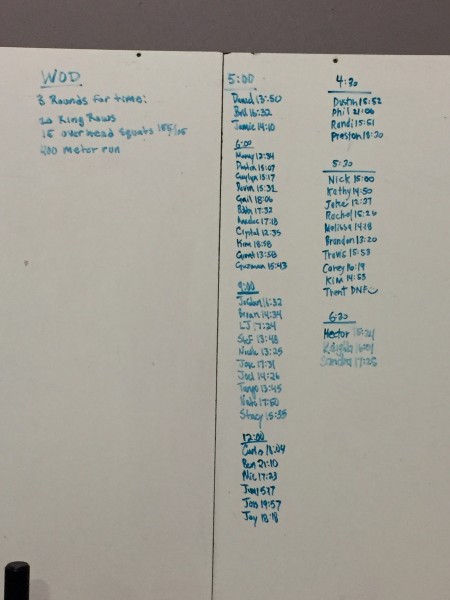 WOD
3 Rounds for time:
20 Ring Rows
15 overhead squats
400 meter run
5:00
Daniel 13:50
16:32
Jamie 14:10
6:00
Manny 12:34
Dustin 15:07
15:17
15:31
Gail 18:06
17:32
17:18
Crystal 12:35
Kim 18:58
Grant 13:58
Guzman 15:43
9:00
Jordan 16:32
Brian 14:34
LJ 17:24
Stef 13:48
Nicole 13:25
17:31
Joel 14:26
13:45
17:50
Stacy 15:35
12:00
Carlos 18:04
Ben 21:10
Nic 17:23
Jon 19:57
Jay 18:18
4:30
Dustin 15:52
Phil 21:06
Randi 15:51
Preston 18:30
5:30
Nick 15:00
Kathy 14:50
Jake 12:27
Rachel 15:26
Melissa 14:18
Brandon 13:20
Travis 15:53
Corey 16:19
Kim 14:53
Trent DNF
6:30
Hector
Sandra 17:25